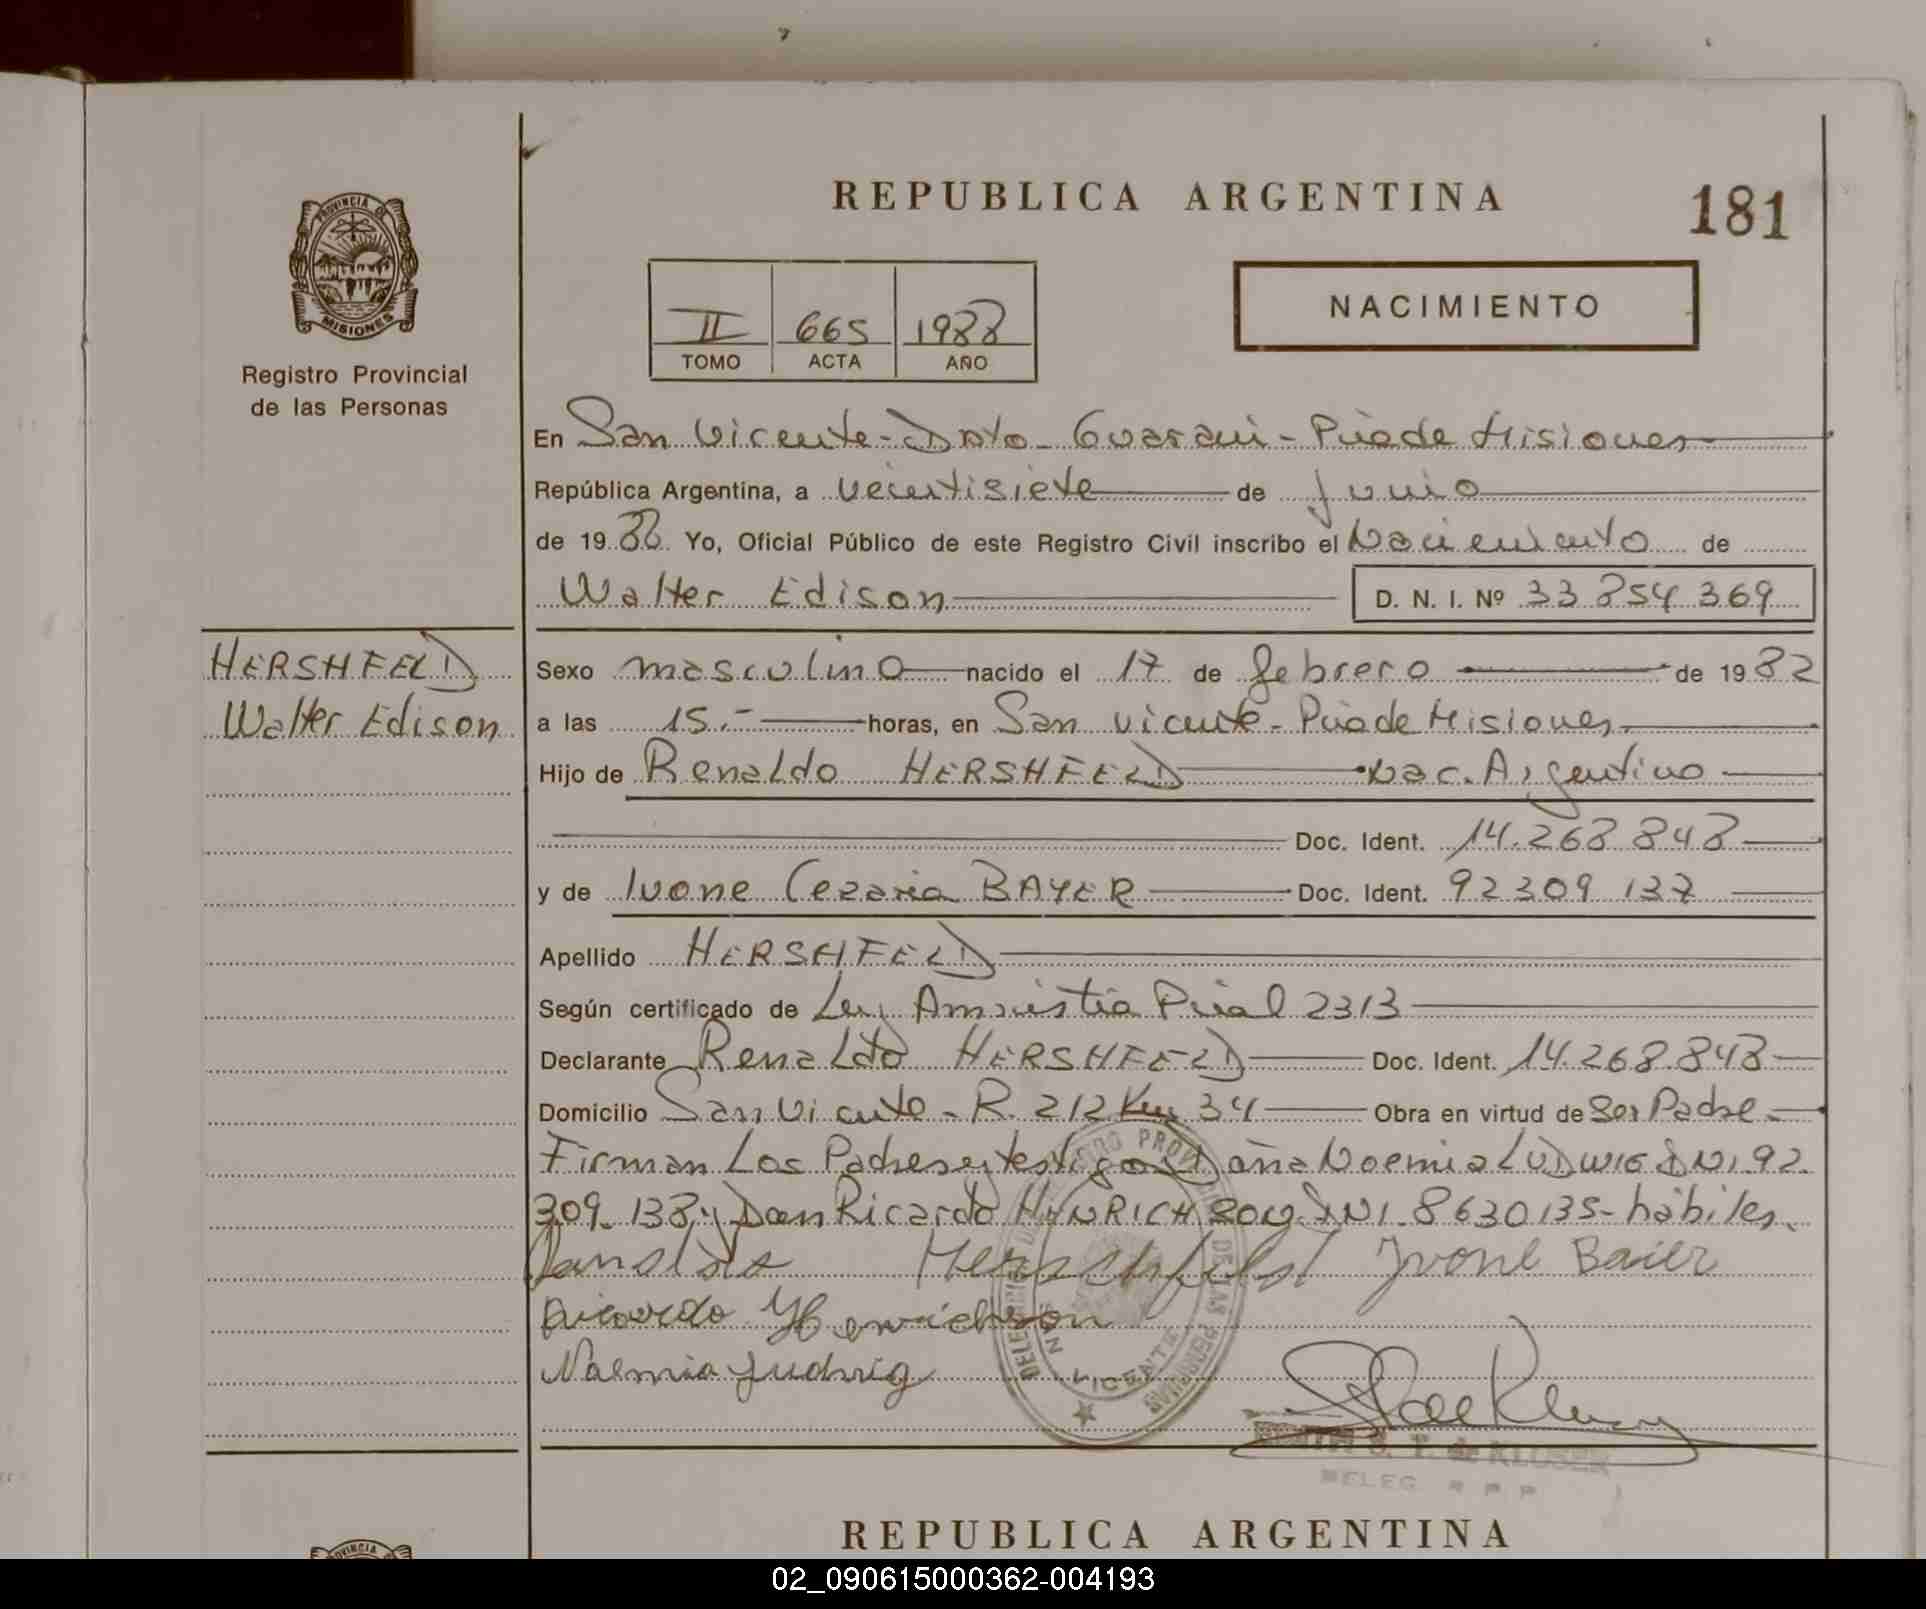 REPUBLICA ARGENTINA
181
PROVINCIA DE
MISIONES
Registro Provincial
de las Personas
II 665 1988
TOMO ACTA AÑO
NACIMIENTO
En San Vicente - Dpto - Guaraní - Pcia de Misiones
República Argentina, a veintisiete de junio
de 1988 Yo, Oficial Público de este Registro Civil inscribo el Nacimiento de
Walter Edison D. N. I. Nº 33 854 369
HERSHFELD
Walter Edison
Sexo masculino nacido el 17 de febrero de 1982
a las 15.- horas, en San Vicente - Pcia de Misiones
Hijo de Renaldo HERSHFELD Nac. Argentino
Doc. Ident. 14.268.848
y de Ivone Cezaria BAYER Doc. Ident. 92 309 137
Apellido HERSHFELD
Según certificado de Ley Amnistia Pcial 2313
Declarante Renaldo HERSHFELD Doc. Ident. 14.268.848
Domicilio San Vicente - R. 212 Km 34 Obra en virtud de Ser Padre
Firman Los Padres y testigos Doña Noemia LUDWIG DNI 92.
309.138 y Don Ricardo DNI. 8630135 - hábiles.
Ivone Baier
Ricardo
Noemia Ludwig
VICENTE
S. T. de KLUSER
DELEG. R P P
REPUBLICA ARGENTINA
PROVINCIA
02_090615000362-004193